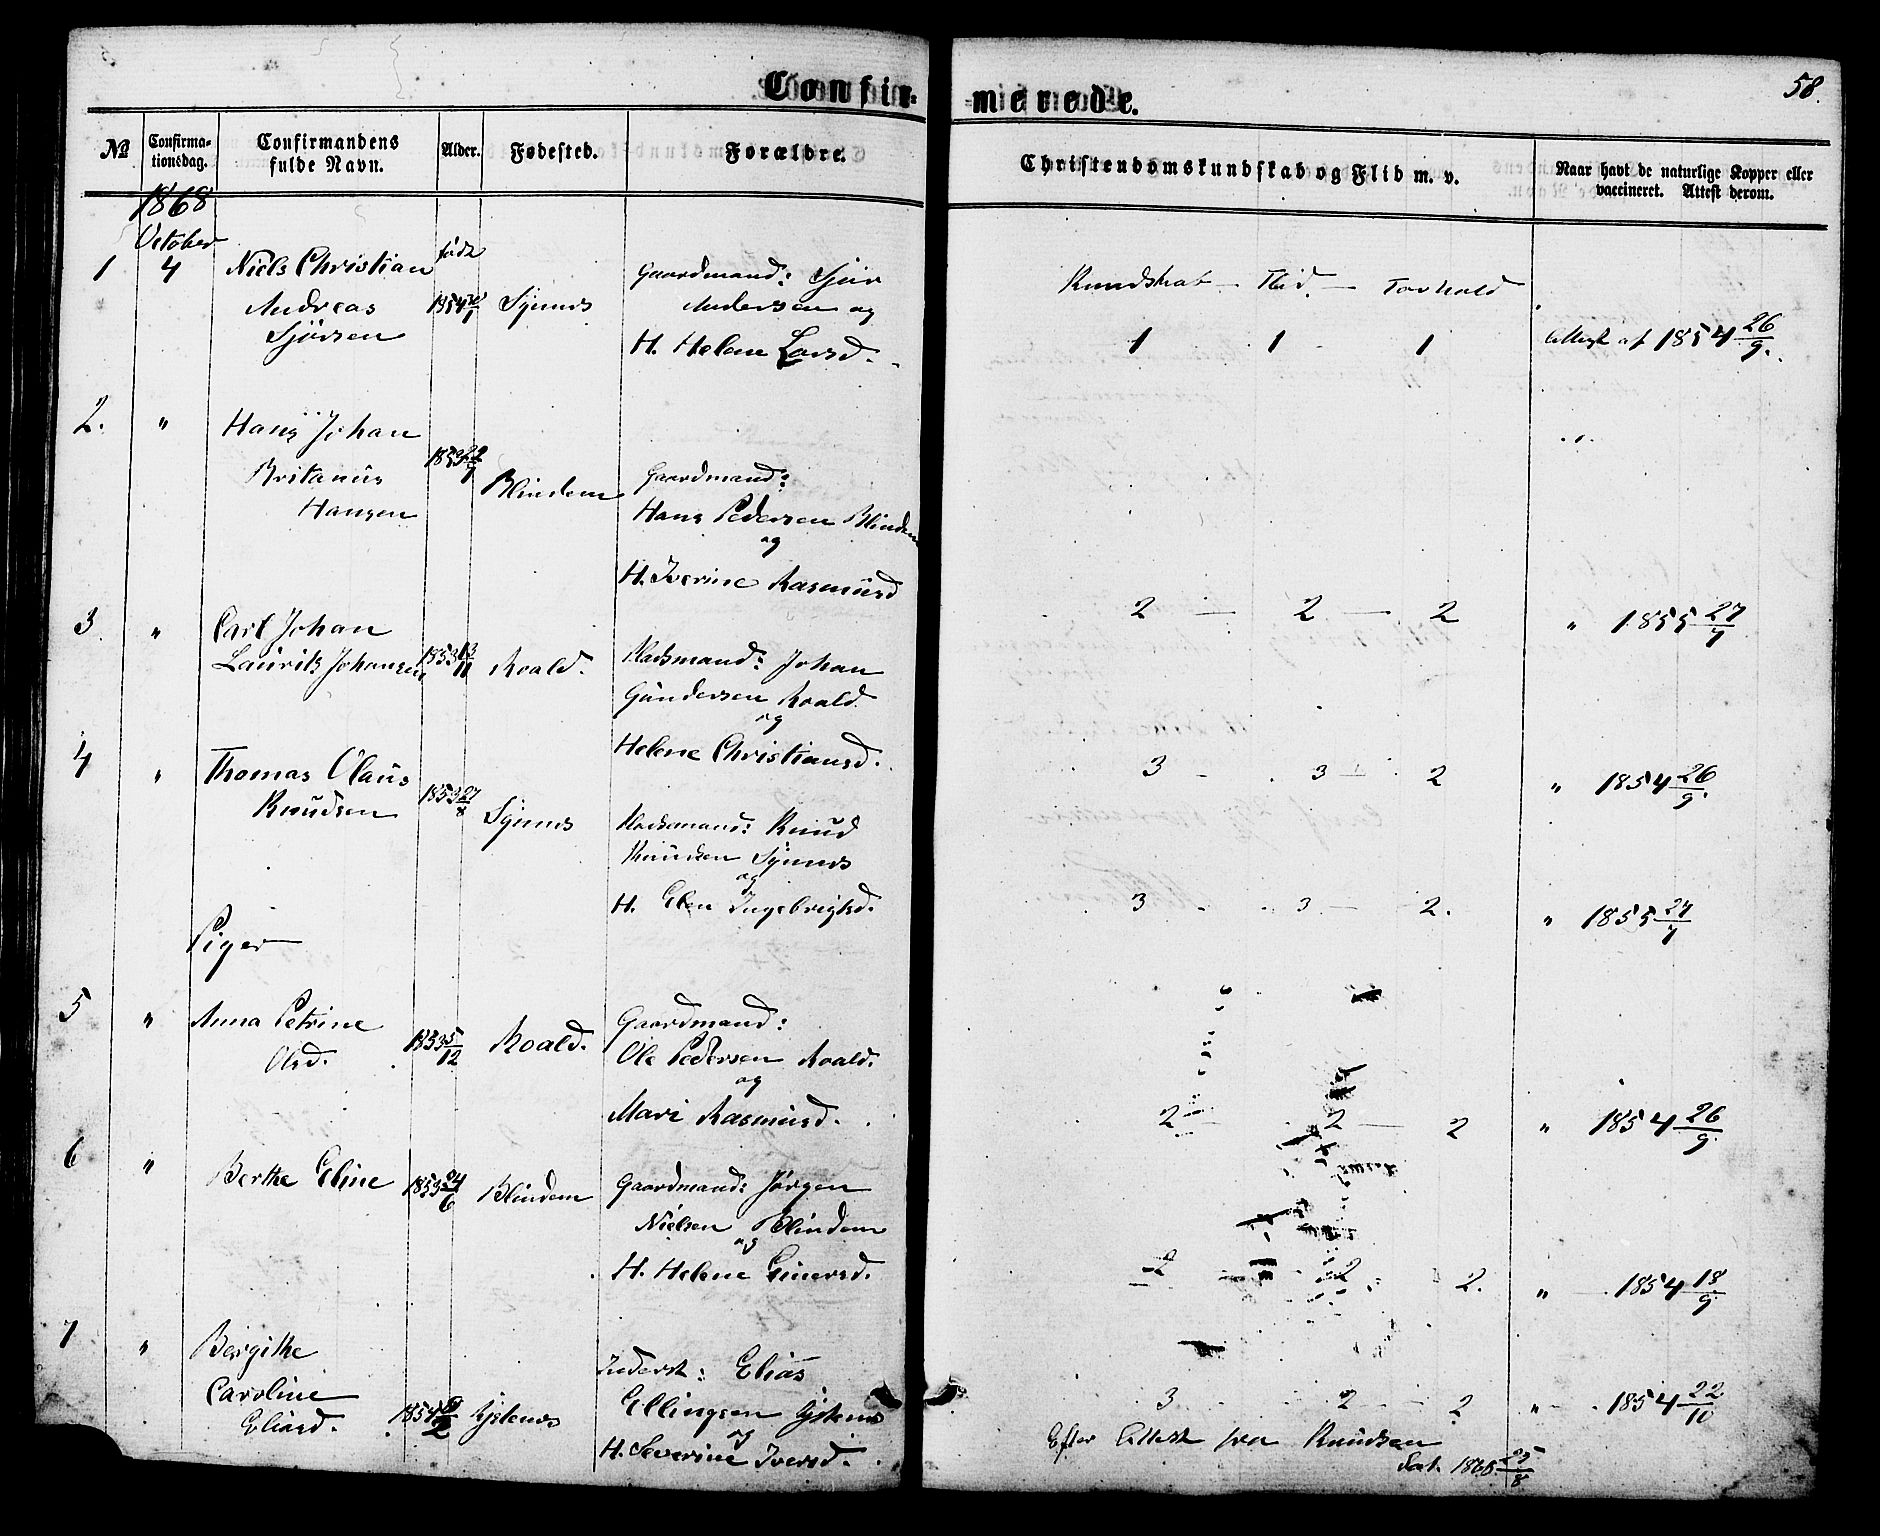 Confir-
merede.
58.
№
Confirma-
tionsdag.
Confirmandens
fulde Navn.
Alder.
Fødested.
Forældre.
Christendomskundskab og Flid m. v.
Naar havt de naturlige Kopper eller
vaccineret. Attest derom.
1868
October
1 4 Niels Christian
Andreas
Sjørsen
født
1854
Synnes
Gaardmand: Sjur
Andersen og
H. Helene Larsd.
Kundskab — Flid — Forhold
1 1 1
Attest af 1854 26/9.
2. " Hans Johan
Britanus
Hansen
1853 22/7
Blindem
Gaardmand:
Hans Pedersen Blindem
og
H. Iverine Rasmusd
2 — 2 — 2
" 1855 27/7
3. " Carl Johan
Laurits Johansen
1853 13/11
Roald.
Pladsmand: Johan
Gundersen Roald
og
Helene Christiansd.
3 - 3 - 2
" 1854 26/9.
4 " Thomas Olaus
Knudsen
1853 27/8
Synnes
Pladsmand: Knud
Knudsen Synnes
og
H. Elen Ingebrigtsd.
3 - 3 — 2.
" 1855 27/7
Piger
5 " Anna Petrine
Olsd.
1853 5/12
Roald.
Gaardmand:
Ole Pedersen Roald.
og
Mari Rasmusd.
2 2 — 2
" 1854 26/9.
6 " Berthe Eline
1853 24/6
Blindem
Gaardmand: Jørgen
Nielsen Blindem
og
H. Helene Einersd.
2 - 2 2.
" 1854 18/9.
7 " Bergithe
Caroline
Eliasd.
1854
Gjetenes
Inderst: Elias
Ellingsen Gjetenes
og
H. Severine Iversd.
3 - 2 - 2
" 1854 22/10
Efter Attest fra Knudsen
dat. 1868 25/8